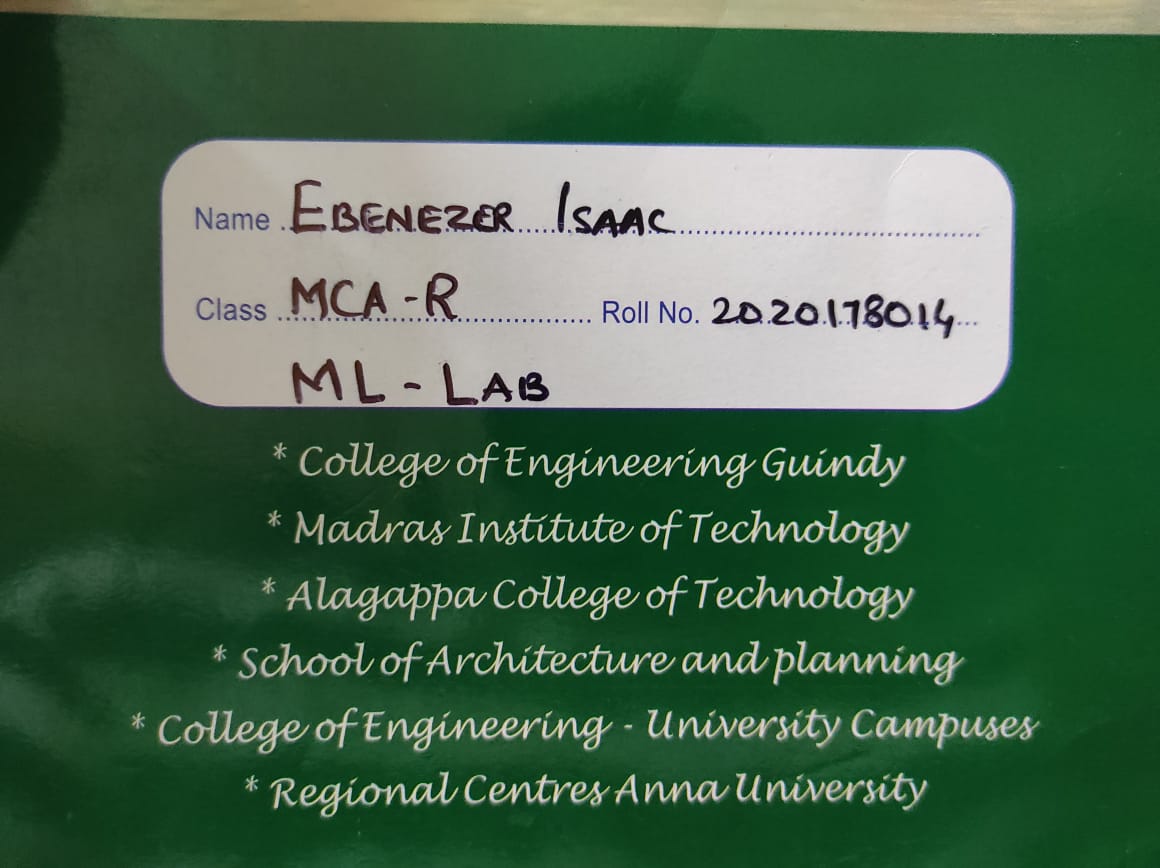 Name EBENEZER ISAAC
Class MCA-R Roll No. 2020178014
ML-LAB
* College of Engineering Guindy
* Madras Institute of Technology
* Alagappa College of Technology
* School of Architecture and planning
* College of Engineering - University Campuses
* Regional Centres Anna University